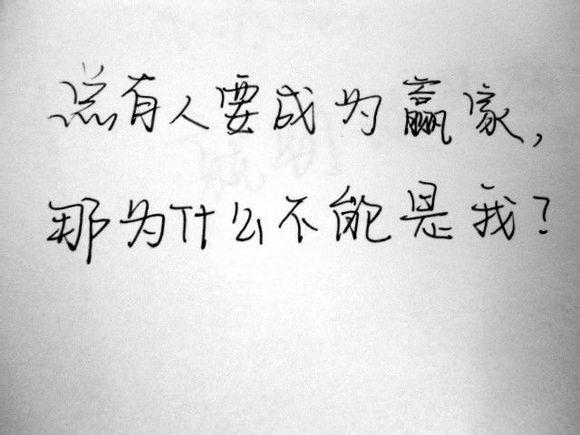 总有人要成为赢家,
那为什么不能是我?